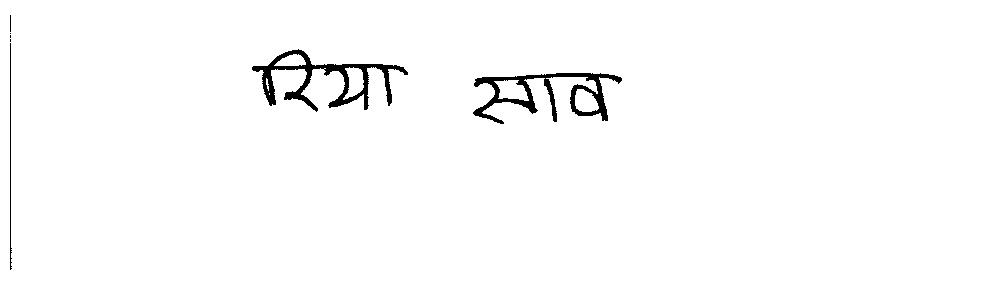 रिया साव